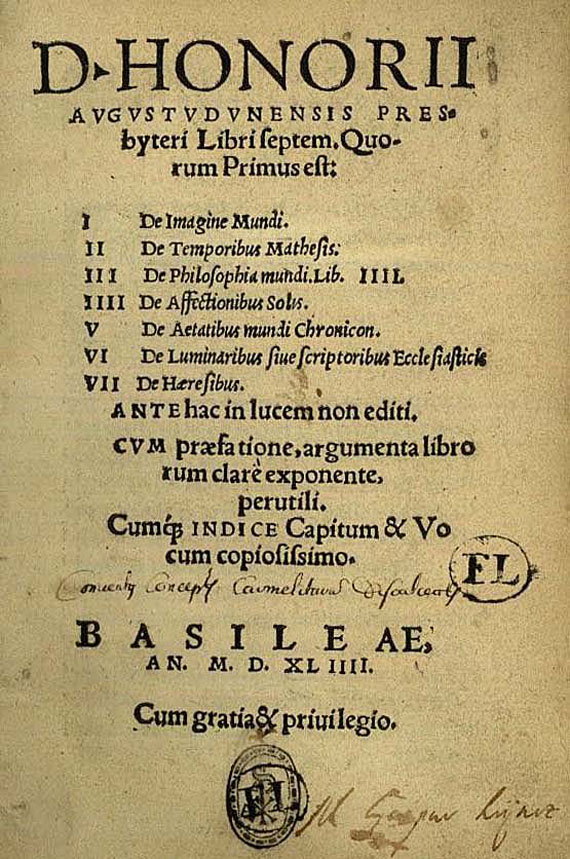 D. HONORII
AVGVSTVDVNENSIS PRES-
byteri Libri ſeptem, Quo-
rum Primus eſt:
I De Imagine Mundi.
II De Temporibus Matheſis.
III De Philoſophia mundi. Lib. IIII.
IIII De Affectionibus Solis.
V De Aetatibus mundi Chronicon.
VI De Luminaribus ſiue ſcriptoribus Eccleſiaſticis
VII De Hæreſibus.
ANTE hac in lucem non editi.
CVM præfatione, argumenta libro
rum clarè exponente,
perutili.
Cumq́ꝫ INDICE Capitum & Vo
cum copioſiſsimo.
FL
BASILEAE,
AN. M. D. XLIIII.
Cum gratia & priuilegio.
FL